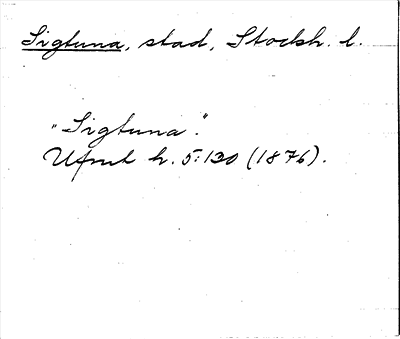 Sigtuna, stad, Stockh. l.
"Sigtuna".
Ufmt h. 5:130 (1876).